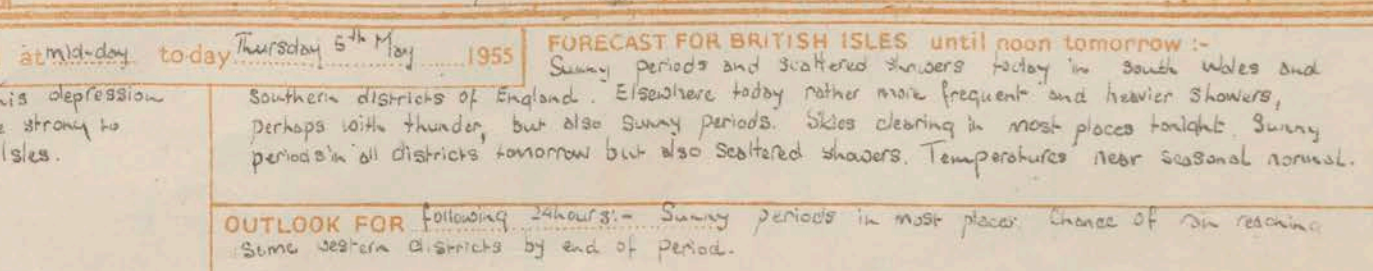 at mid-day to-day Thursday 5th May 1955
his depression
e strong to
Isles.
FORECAST FOR BRITISH ISLES until noon tomorrow :-
Sunny periods and scattered showers today in South Wales and
Southern districts of England. Elsewhere today rather more frequent and heavier showers,
perhaps with thunder, but also sunny periods. Skies clearing in most places tonight. Sunny
periods in all districts tomorrow but also scattered showers. Temperatures near seasonal normal.
OUTLOOK FOR following 24 hours:- Sunny periods in most places. Chance of rain reaching
some western districts by end of period.